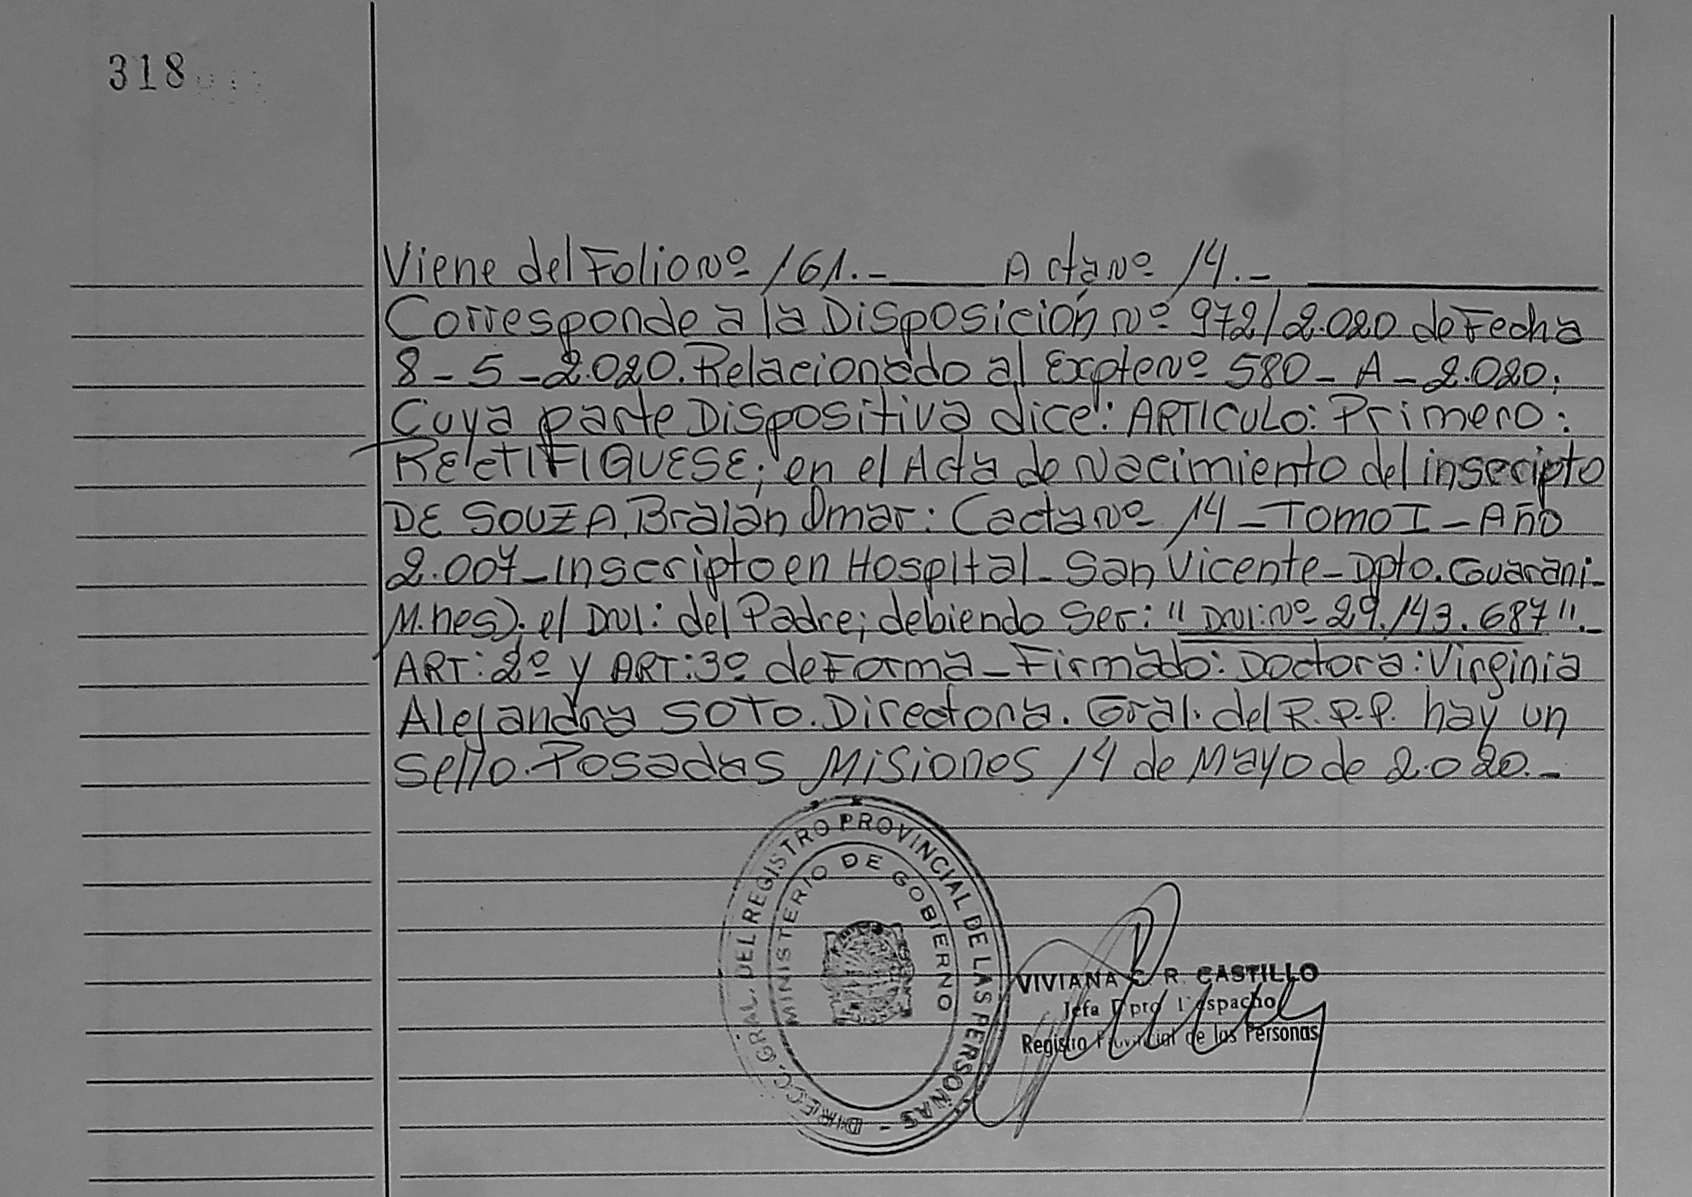 318
Viene del Folio Nº 161.- Acta Nº 14.-
Corresponde a la Disposición Nº 972/2.020 de Fecha
8-5-2.020. Relacionado al Expte Nº 580-A-2.020.
Cuya parte Dispositiva dice: ARTICULO: Primero:
RELETIFIQUESE; en el Acta de Nacimiento del inscripto
DE SOUZA, Braian Omar: (acta Nº 14-TOMO I-Año
2.007-inscripto en Hospital-San Vicente-Dpto. Guarani-
M.nes); el DNI: del Padre; debiendo Ser: "DNI: Nº 29.143.687".-
ART: 2º y ART: 3º de Forma-Firmado: Doctora: Virginia
Alejandra SOTO. Directora. Gral. del R.P.P. hay un
sello. Posadas Misiones 14 de Mayo de 2.020.-
DIRECC. GRAL. DEL REGISTRO PROVINCIAL DE LAS PERSONAS -
MINISTERIO DE GOBIERNO
VIVIANA C. R. CASTILLO
Jefa Dpto Despacho
Registro Provincial de las Personas